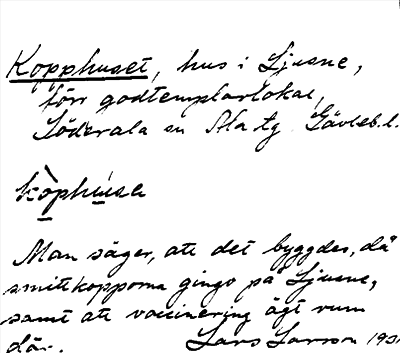 Kopphuset, hus i Ljusne,
förr godtemplarlokal,
Söderala sn Ala tg Gävleb. l.
kòphusa
Man säger, att det byggdes, då
smittkopporna gingo på Ljusne,
samt att vaccinering ägt rum
där. Lars Larson 193